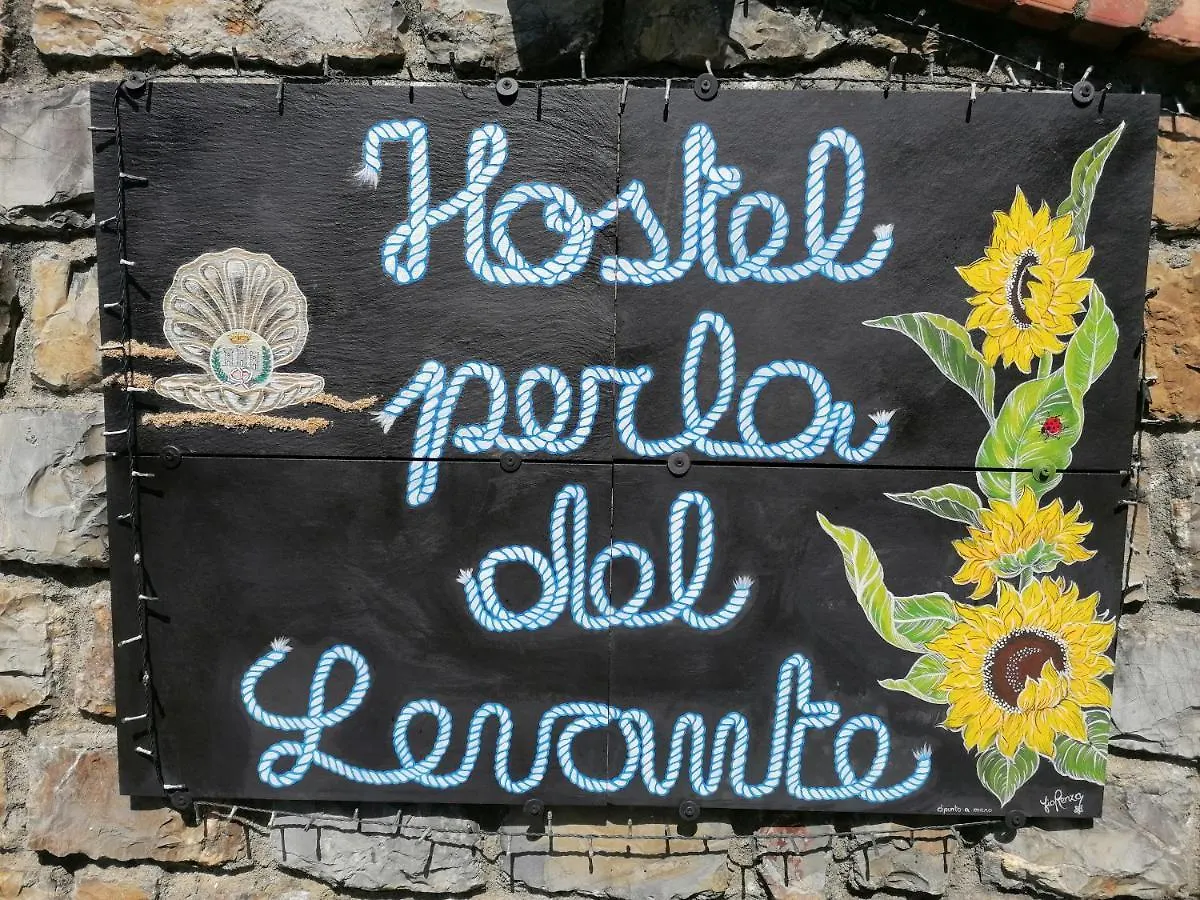 Hostel
perla
del
Levante
dipinto a mano